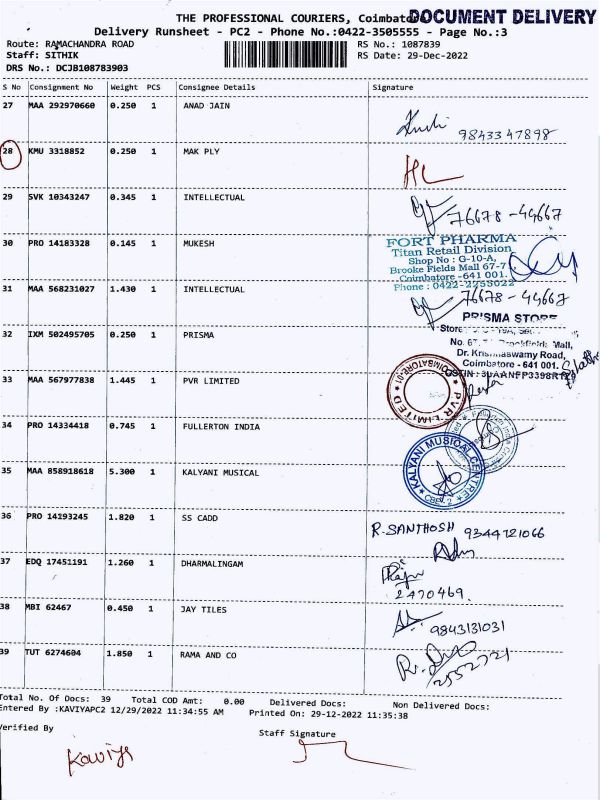 THE PROFESSIONAL COURIERS, Coimbato
DOCUMENT DELIVERY
Delivery Runsheet - PC2 - Phone No.:0422-3505555 - Page No.:3
Route: RAMACHANDRA ROAD
RS No.: 1087839
Staff: SITHIK
RS Date: 29-Dec-2022
DRS No.: DCJB108783903
S No Consignment No Weight PCS Consignee Details Signature
27 MAA 292970660 0.250 1 ANAD JAIN
9843347898
28 KMU 3318852 0.250 1 MAK PLY
29 SVK 10343247 0.345 1 INTELLECTUAL
76678-44667
30 PRO 14183328 0.145 1 MUKESH
FORT PHARMA
Titan Retail Division
Shop No : G-10-A,
Brooke Fields Mall 67-7
Coimbatore - 641 001.
Phone : 0422-2255022
31 MAA 568231027 1.430 1 INTELLECTUAL
76678-44667
32 IXM 502495705 0.250 1 PRISMA
PRISMA STORE
Store
No. 67 Brookfields Mall,
Dr. Krishnaswamy Road,
Coimbatore - 641 001.
33 MAA 567977838 1.445 1 PVR LIMITED
PVR LIMITED COIMBATORE-01
34 PRO 14334418 0.745 1 FULLERTON INDIA
35 MAA 858918618 5.300 1 KALYANI MUSICAL
KALYANI MUSICAL CENTRE
CBE-2
36 PRO 14193245 1.820 1 SS CADD
R. SANTHOSH 9344721066
37 EDQ 17451191 1.260 1 DHARMALINGAM
2470469.
38 MBI 62467 0.450 1 JAY TILES
9843131031
39 TUT 6274604 1.850 1 RAMA AND CO
2552721
Total No. Of Docs: 39 Total COD Amt: 0.00 Delivered Docs: Non Delivered Docs:
Entered By :KAVIYAPC2 12/29/2022 11:34:55 AM Printed On: 29-12-2022 11:35:38
Verified By
Staff Signature
Kaviya